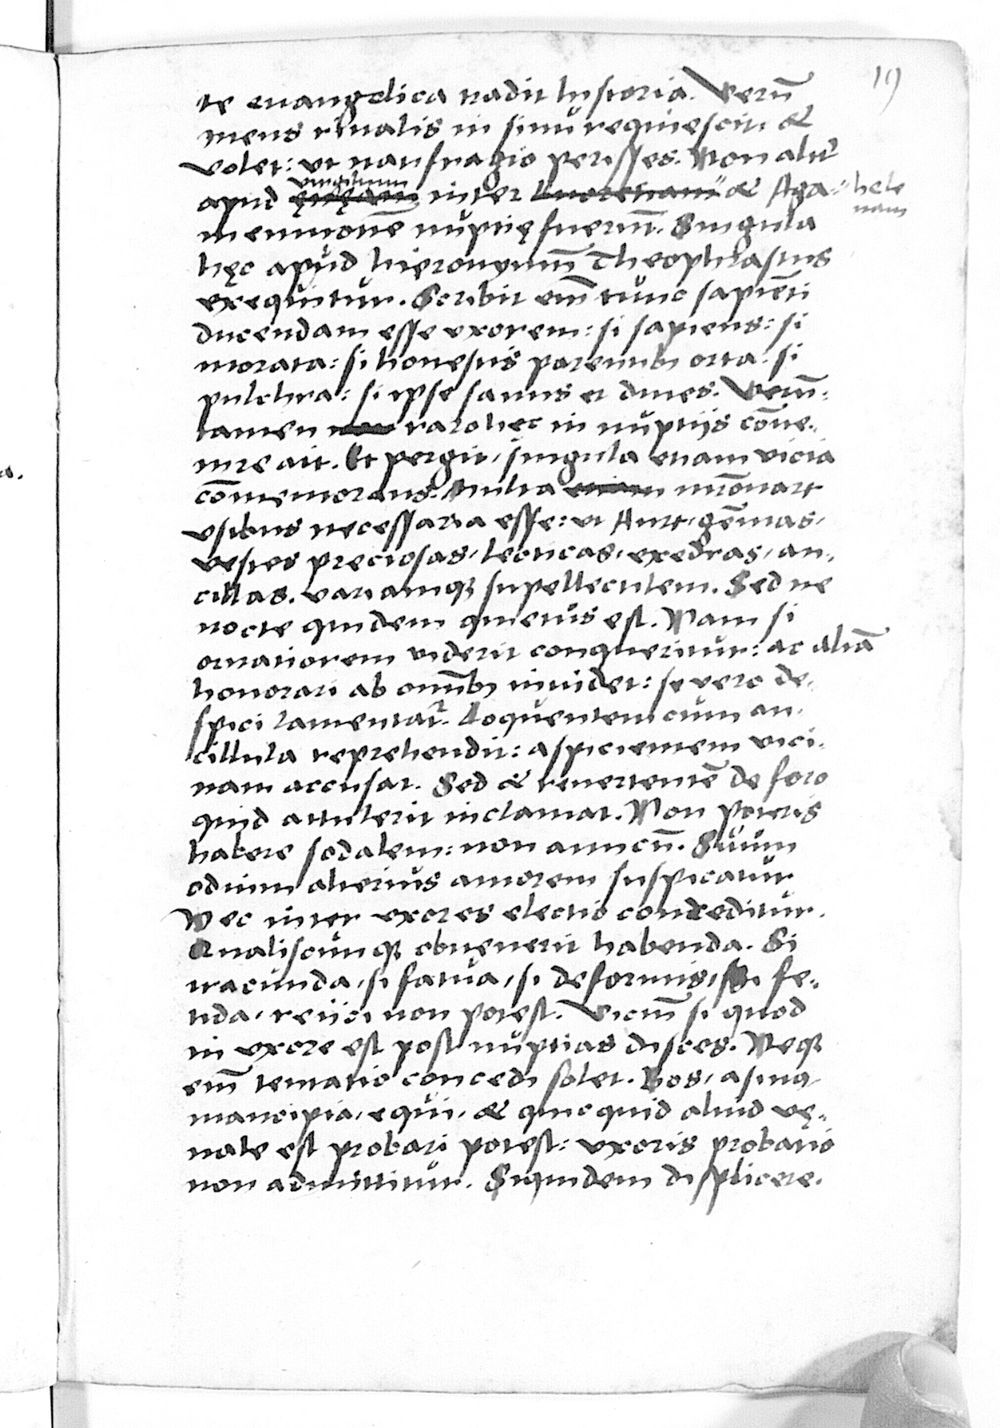 19
te euangelica tradit hystoria. Verū
mens riualis in sinu requiescit: &
volet: vt naufragio perisses. Non alit̄
apud virgilium inter & Aga- hele
memnonē nuptię fuerūt. Singula nam
hęc apud hieronymū Theophrastus
exequitur. Scribit em̄ tunc sapiēti
ducendam esse vxorem: si sapiens: si
morata: si honestis parentib; orta: si
pulchra: si ipse sanus et diues. Verū-
tamen raro hec in nuptijs cōue-
nire ait. Et pergit, singula etiam vicia
cōmemorans. Multa matronarū
vsibus necessaria esse: vt Aurū, gēmas,
vestes preciosas, lecticas, exedras, an-
cillas, variamq; supellectilem. Sed ne
nocte quidem quietus est. Nam si
ornatiorem viderit conqueritur: ac aliā
honorari ab omnib; inuidet: se vero de-
spici lamentat̄. Loquentem cum an-
cillula reprehendit: aspicientem vici-
nam accusat. Sed & reuertentē de foro
quid attulerit inclamat. Non poteris
habere sodalem: non amicū. Suum
odium alterius amorem suspicatur
Nec inter vxores electio conceditur.
Qualiscunq; obuenerit habenda. Si
iracunda, si fatua, si deformis, si fe-
tida, reijci non potest. Viciū si quod
in vxore est post nuptias disces. Neq;
em̄ tentatio concedi solet. Bos, asinus
mancipia, equi, & quicquid aliud vę-
nale est probari potest: vxoris probatio
non admittitur. Siquidem displicere.
a.